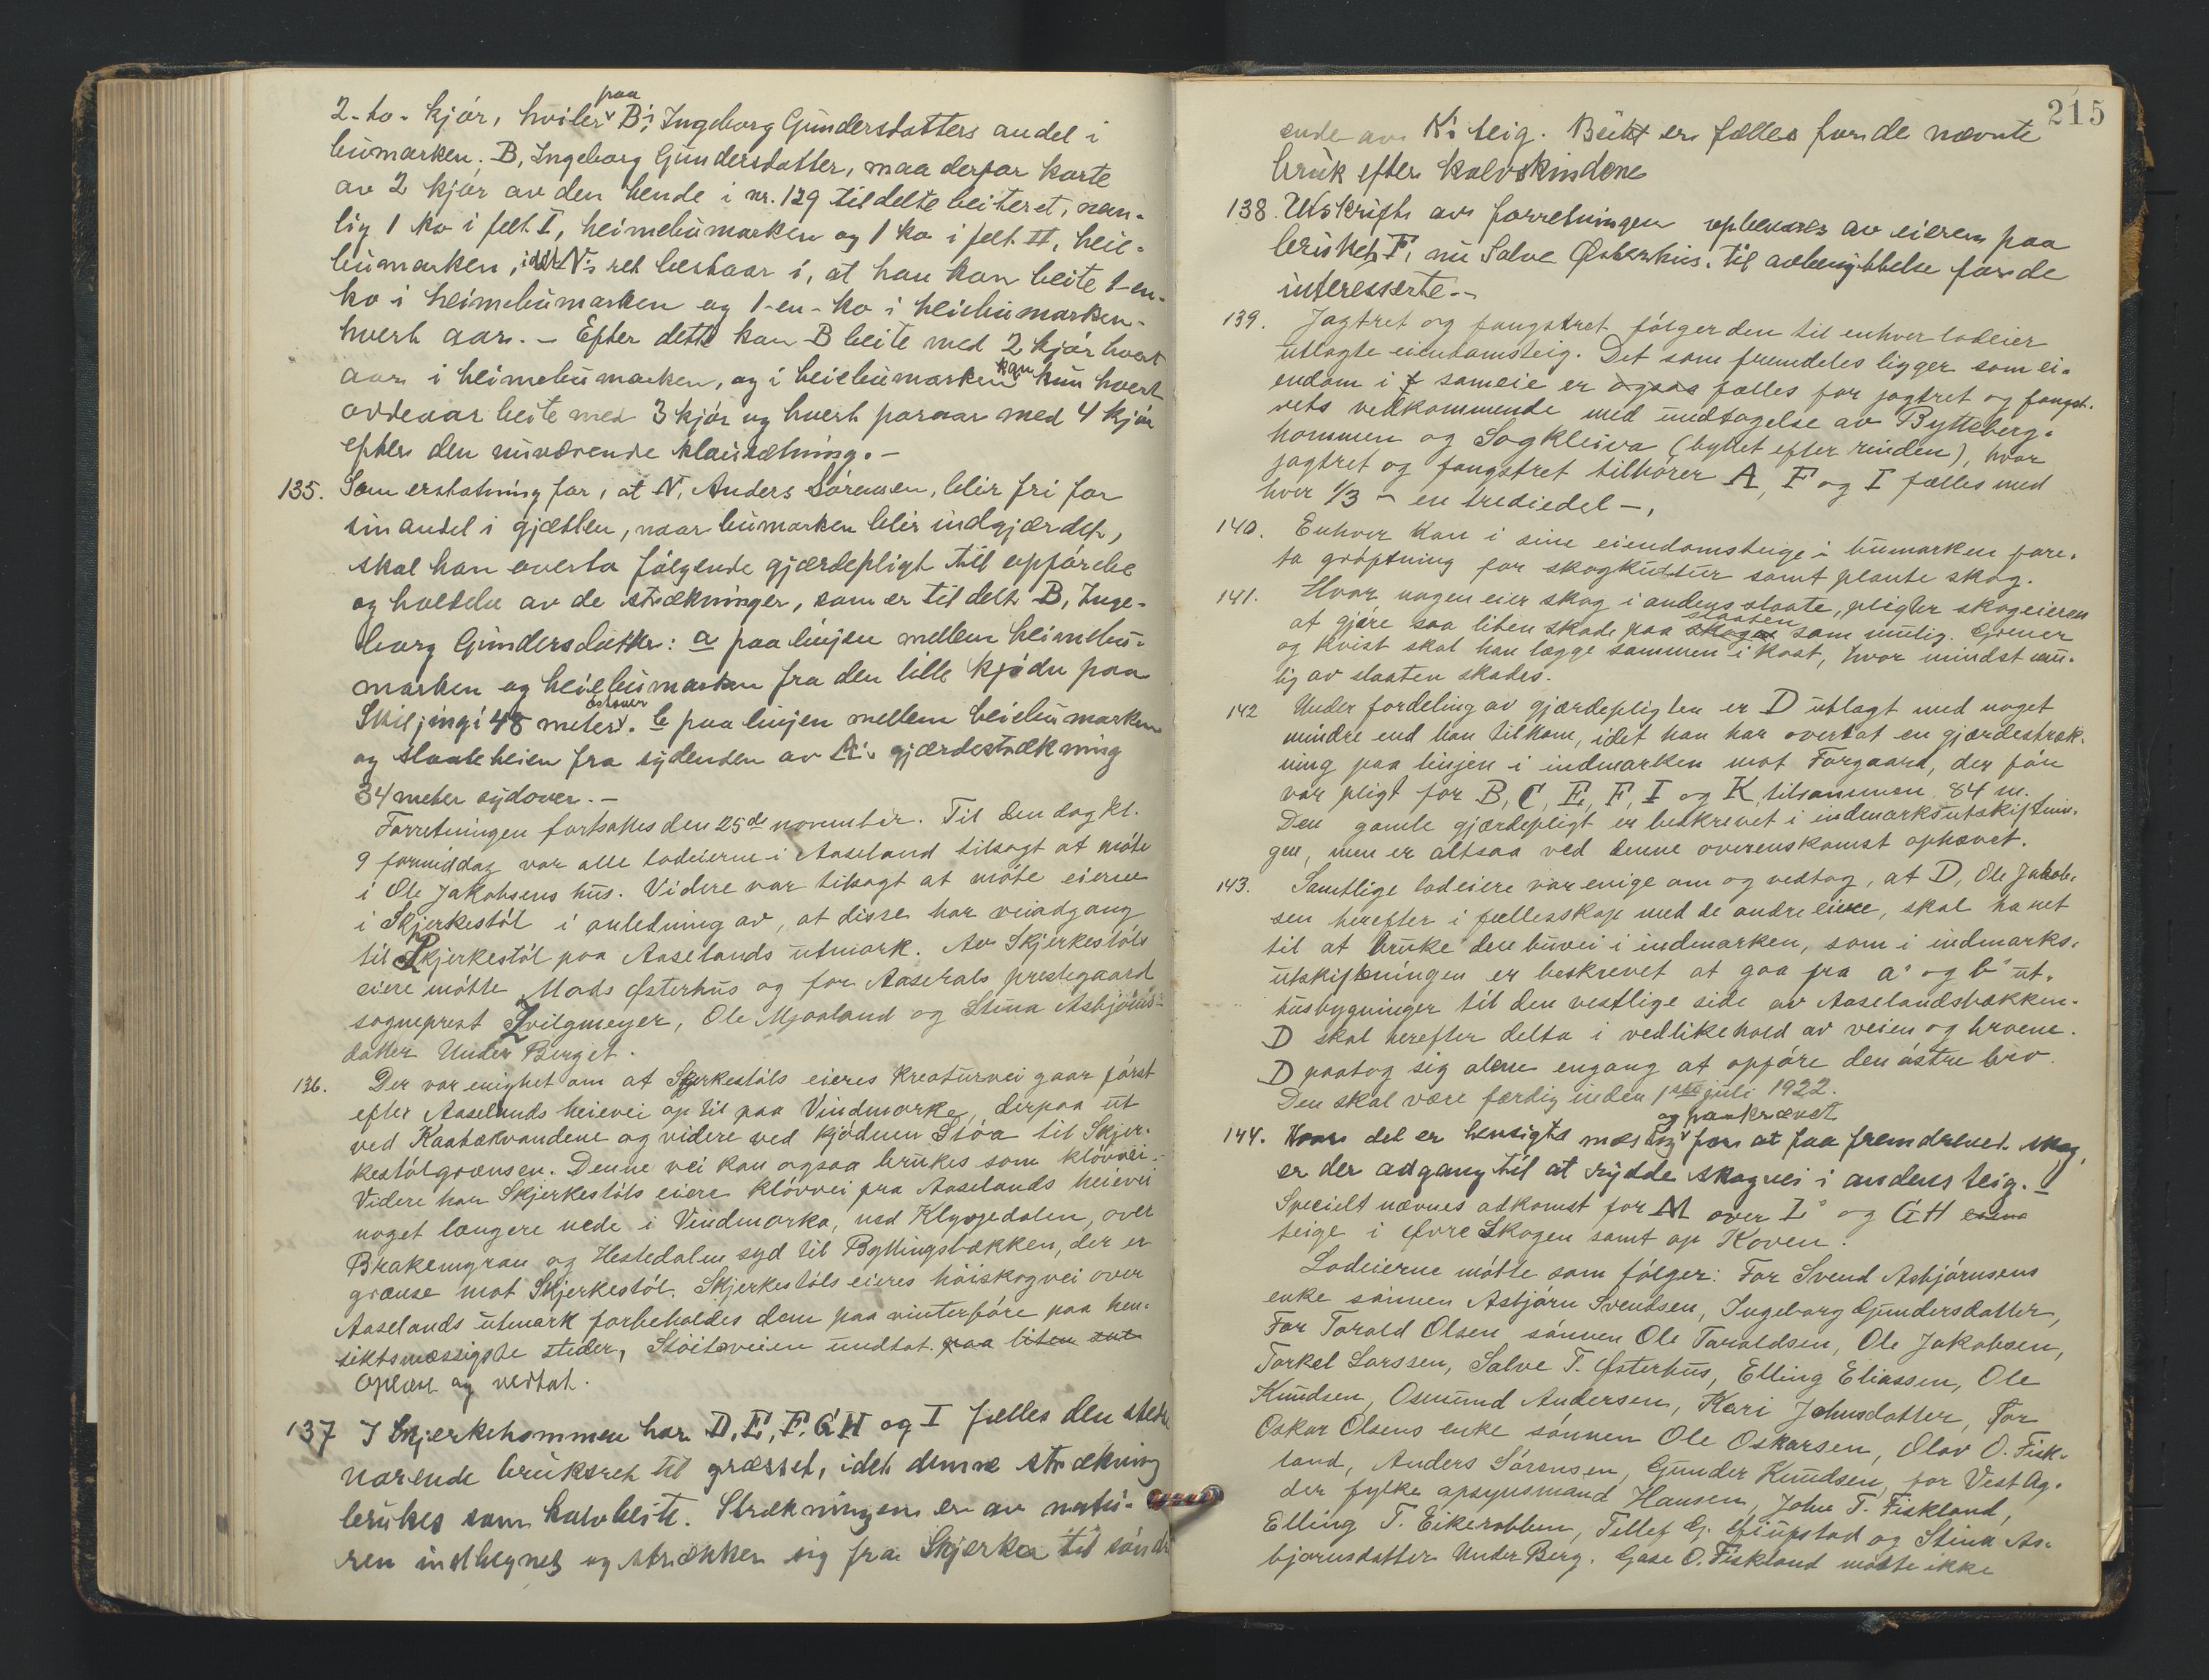 2-to- kjør, hviler paa B's, Ingeborg Gundersdatters andel i
bumarken. B, Ingeborg Gundersdatter, maa derfor korte
av 2 kjør av den hende i nr. 129 tildelte beiteret, nem-
lig 1 ko i felt I, heimebumarken og 1 ko i felt II, heie-
bumarken, idet N's ret bestaar i, at han kan beite 1-en-
ko i heimebumarken og 1-en-ko i heiebumarken
hvert aar. - Efter dette kan B beite med 2 kjør hvert
aar i heimebumarken, og i heiebumarken kan kun hvert
oddeaar beite med 3 kjør og hvert paraar med 4 kjør
efter den nuværende klausætning. -
135. Som erstatning for, at N, Anders Sørensen, blir fri for
sin andel i gjætslen, naar bumarken blir indgjærdet,
skal han overta følgende gjærdepligt til opførelse
og holdelse av de strækninger, som er tildelt B, Inge-
borg Gundersdatter: a paa linjen mellem heimebu-
marken og heiebumarken fra den lille kjødn paa
Skiljingi 48 meter østover. b paa linjen mellem heiebumarken
og slaatteheien fra sydenden av A's gjærdestrækning
34 meter sydover. -
Forretningen fortsattes den 25de november. Til den dag kl.
9 formiddag var alle lodeierne i Aaseland tilsagt at møte
i Ole Jakobsens hus. Videre var tilsagt at møte eierne
i Skjerkestøl i anledning av, at disse har veiadgang
til Skjerkestøl paa Aaselands utmark. Av Skjerkestøls
eiere møtte Mads Østerhus og for Aaserals prestegaard
sogneprest Zvilgmeyer, Ole Mjaaland og Stina Asbjørns-
datter Under Berget.
136. Der var enighet om at Skjerkestøls eieres kreaturvei gaar først
efter Aaselands heievei op til paa Vindmorka, derpaa ut
ved Kaabækvandene og videre ved kjødnen Stóa til Skjer-
kestølgrænsen. Denne vei kan ogsaa brukes som kløvvei.
Videre har Skjerkestøls eiere kløvvei fra Aaselands heievei
noget længere nede i Vindmorka, ned Klyvjedalen, over
Brakemyran og Hestedalen syd til Byttingsbækken, der er
grænse mot Skjerkestøl. Skjerkestøls eieres høiskogvei over
Aaselands utmark forbeholdes dem paa vinterføre paa hen-
siktsmæssigste steder, Støilsveien undtat. paa liten
Oplæst og vedtat.
137 I Skjerkehommen har D, E, F, G, H og I fælles den stede
varende bruksret til græsset, idet denne strækning
brukes som kalvbeite. Strækningen er av natu-
ren indhegnet og strækker sig fra Skjerka til søndre
215
ende av K's teig. Beitet er fælles for de nævnte
bruk efter kalvskindene
138. Utskrift av forretningen opbevares av eieren paa
bruket F, nu Salve Østerhus, til avbenyttelse for de
interesserte. -
139. Jagtret og fangstret følger den til enhver lodeier
utlagte eiendomsteig. Det som fremdeles ligger som ei-
endom i f sameie er ogsaa fælles for jagtret og fangst-
rets vedkommende med undtagelse av Bytteberg-
hommen og Sagkleiva (byttet efter rinden), hvor
jagtret og fangstret tilhører A, F og I fælles med
hver 1/3 - en trediedel -,
140. Enhver kan i sine eiendomsteige i bumarken fore-
ta grøftning for skogkultur samt plante skog.
141. Hvor nogen eier skog i andens slaate, pligter skogeieren
at gjøre saa liten skade paa skogen slaaten som mulig. Grener
og kvist skal han lægge sammen i kost, hvor mindst mu-
lig av slaaten skades.
142 Under fordeling av gjærdepligten er D utlagt med noget
mindre end han tilkom, idet han har overtat en gjærdestræk-
ning paa linjen i indmarken mot Forgaard, der før
var pligt for B, C, E, F, I og K, tilsammen 84 m.
Den gamle gjærdepligt er beskrevet i indmarksutskiftnin-
gen, men er altsaa ved denne overenskomst ophævet.
143. Samtlige lodeiere var enige om og vedtog, at D, Ole Jakob-
sen herefter i fællesskap med de andre eiere, skal ha ret
til at bruke den buvei i indmarken, som i indmarks-
utskiftningen er beskrevet at gaa fra a' og b' ut-
husbygninger til den vestlige side av Aaselandsbækken.
D skal herefter delta i vedlikehold av veien og broene.
D paatog sig alene engang at opføre den østre bro.
Den skal være færdig inden 1ste juli 1922.
144. Hvor det er hensigtsmæssig og paakrævet for at faa fremdrevet skog,
er der adgang til at rydde skogvei i andens teig. -
Specielt nævnes adkomst for M over L's og G H
teige i Øvre Skogen samt op Koven.
Lodeierne møtte som følger: For Svend Asbjørnsens
enke sønnen Asbjørn Svendsen, Ingeborg Gundersdatter,
For Torald Olsen sønnen Ole Taraldsen, Ole Jakobsen,
Torkel Larssen, Salve T. Østerhus, Elling Eliassen, Ole
Knudsen, Osmund Andersen, Kari Johnsdatter, For
Oskar Olsens enke sønnen Ole Oskarsen, Olav O. Fisk-
land, Anders Sørensen, Gunder Knudsen, for Vest Ag-
der fylke opsynsmand Hansen, John T. Fiskland,
Elling T. Eikerabben, Tellef G. Ljupstad og Stina As-
bjørnsdatter Under Berg. Gase O. Fiskland møtte ikke